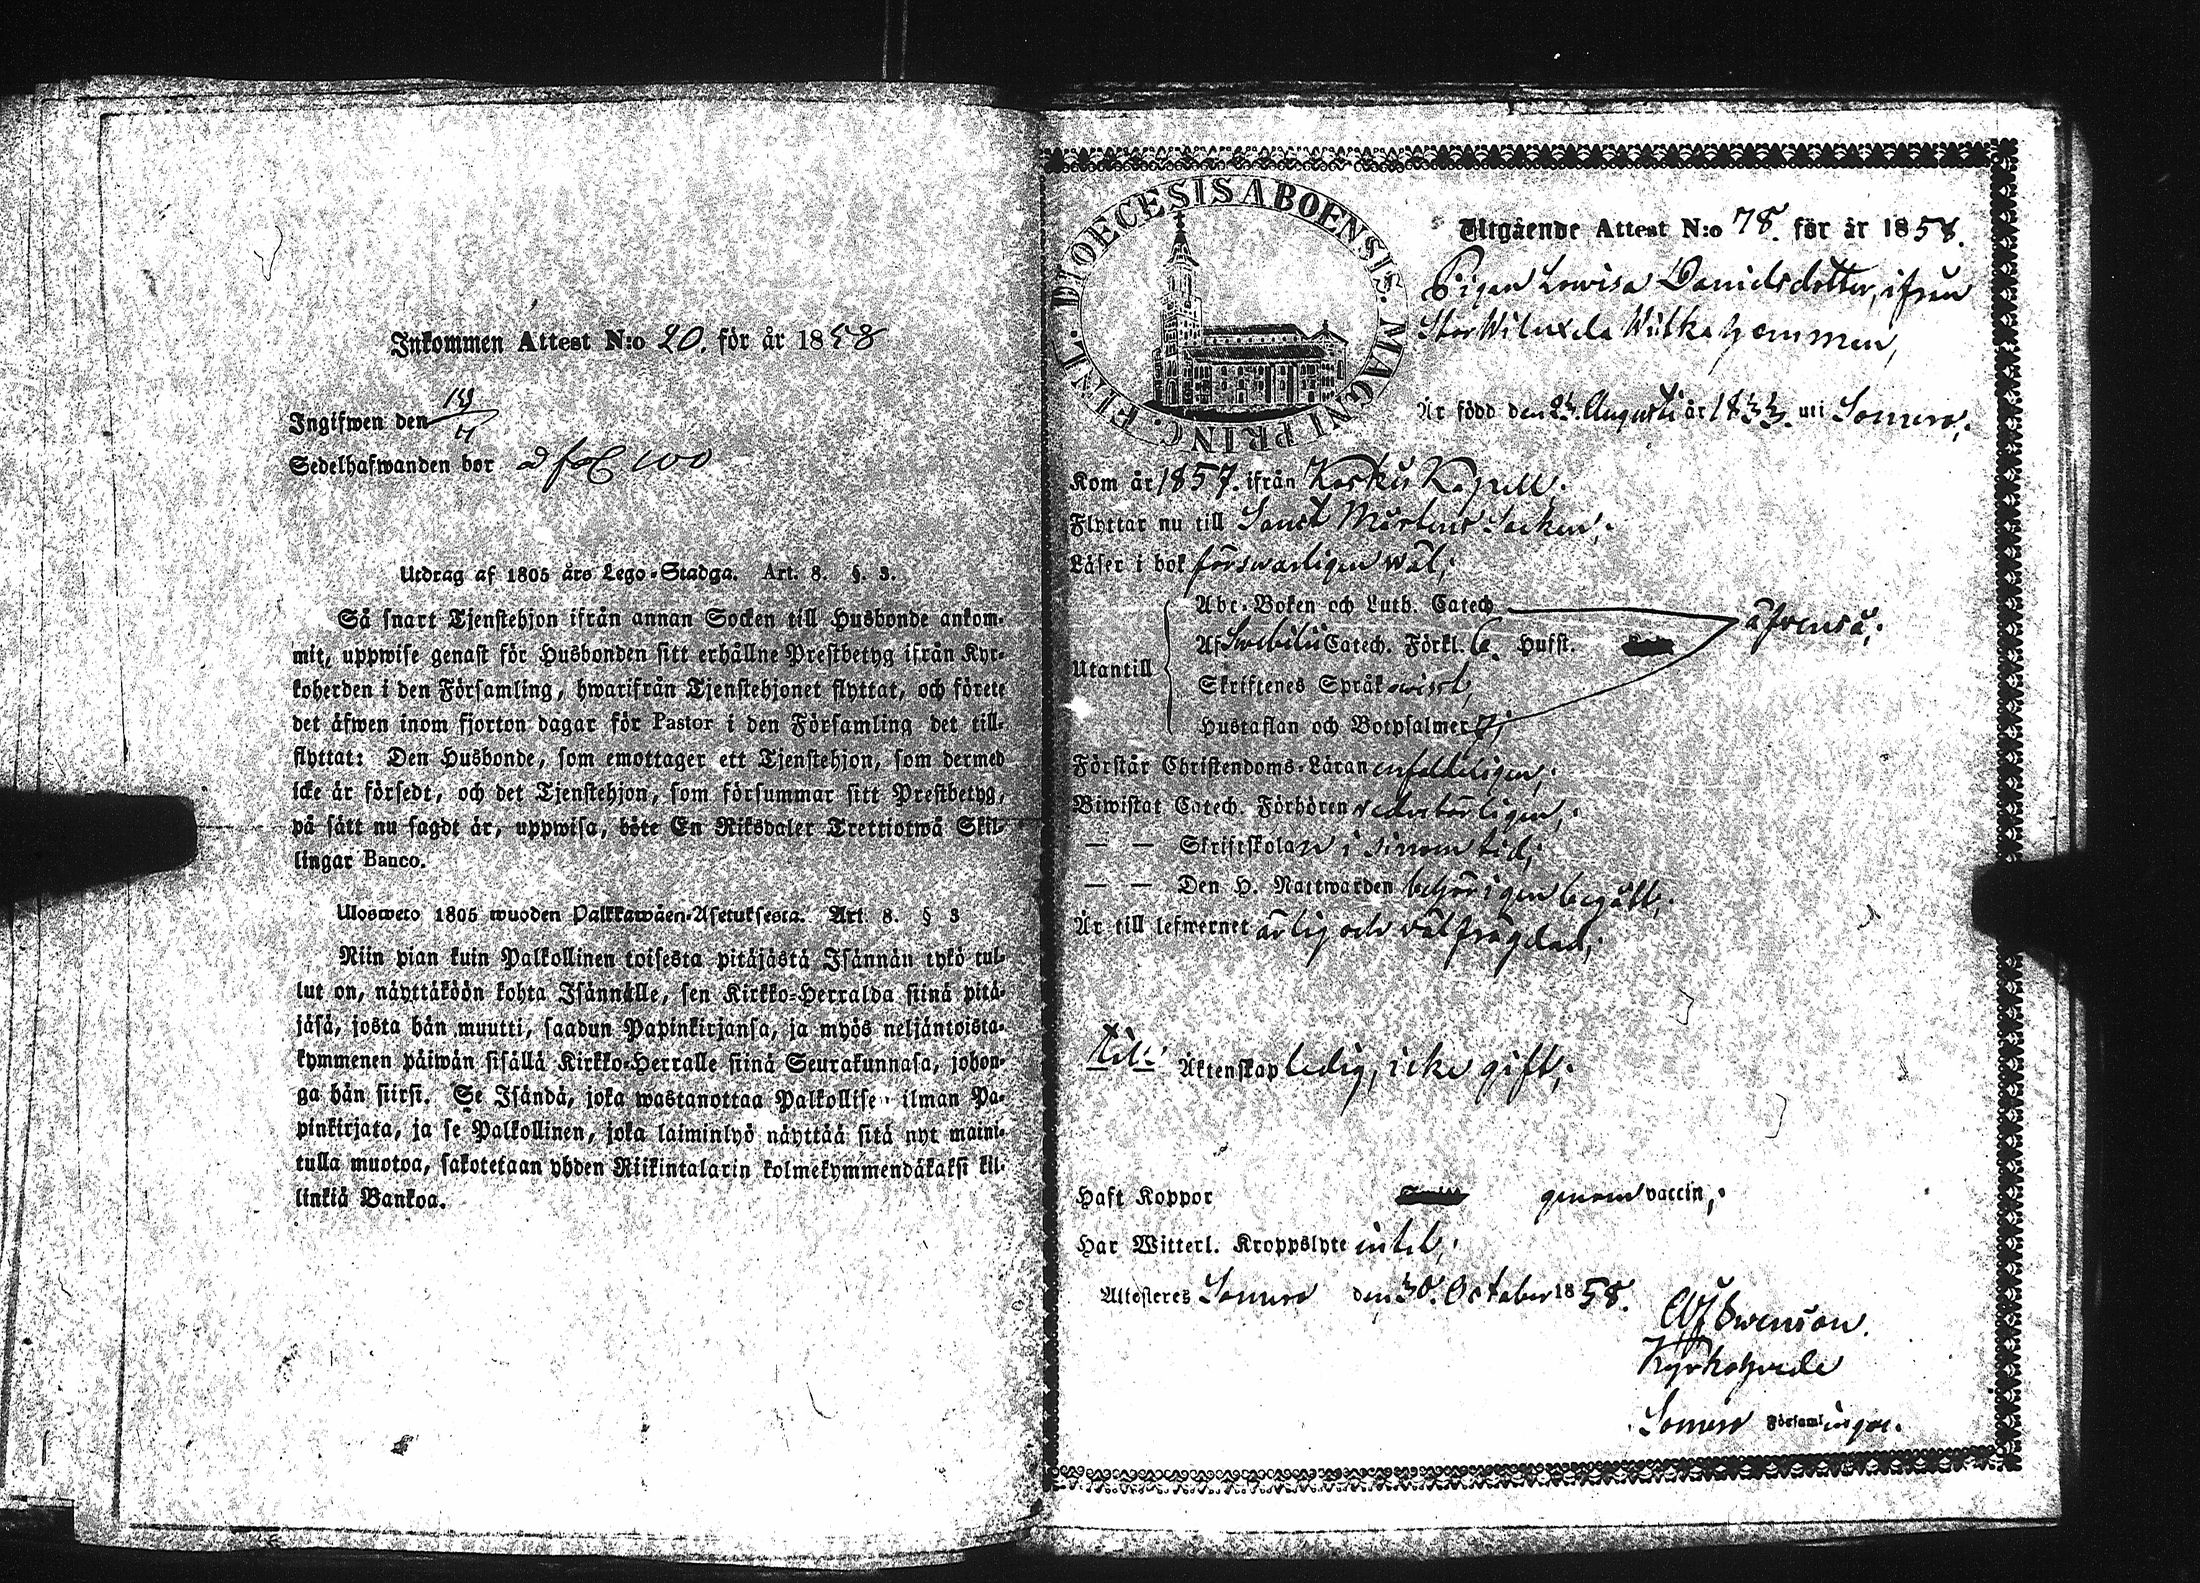 Inkommen Attest N:o 20. för år 1858
Ingifwen den 13/11
Sedelhafwanden bor fol 100
Utdrag af 1805 års Lego-Stadga. Art. 8. §. 3.
Så snart Tjenstehjon ifrån annan Socken till Husbonde ankom-
mit, uppwise genast för Husbonden sitt erhållne Prestbetyg ifrån Kyr-
koherden i den Församling, hwarifrån Tjenstehjonet flyttat, och förete
det äfwen inom fjorton dagar för Pastor i den Församling det till-
flyttat: Den Husbonde, som emottager ett Tjenstehjon, som dermed
icke är försedt, och det Tjenstehjon, som försummar sitt Prestbetyg,
på sätt nu sagdt är, uppwisa, böte En Riksdaler Trettiotwå Skil-
lingar Banco.
Ulosweto 1805 wuoden Palkkawäen-Asetuksesta. Art. 8. § 3
Niin pian kuin Palkollinen toisesta pitäjästä Isännän tykö tul-
lut on, näyttäköön kohta Isännälle, sen Kirkko-Herralda siinä pitä-
jäsä, josta hän muutti, saadun Papinkirjansa, ja myös neljäntoista-
kymmenen päiwän sisällä Kirkko-Herralle siinä Seurakunnasa, johon-
ga hän siirsi. Se Isändä, joka wastanottaa Palkollise ilman Pa-
pinkirjata, ja se Palkollinen, joka laiminlyö näyttää sitä nyt maini-
tulla muotoa, sakotetaan yhden Riikintalarin kolmekymmendäkaksi kil-
linkiä Bankoa.
DIOECESIS ABOENSIS. MAGNI PRINC. FINL.
Utgående Attest N:o 78. för år 1858.
Pigan Lowisa Danielsdotter, ifrån
Stor Wiluxela Uitka hemman,
Är född den 23. Augusti år 1833. uti Somero,.
Kom år 1857. ifrån Koskis Kapell,.
Flyttar nu till Sanct Mårtens Socken,.
Läser i bok förswarligen wäl,.
Utantill
Abc-Boken och Luth. Catech. äfvenså,.
Af Swebilii Catech. Förkl. 6. Hufst.
Skriftenes Språk wisst,
Hustaflan och Botpsalmer 7,.
Förstår Christendoms-Läran enfaldeligen,.
Biwistat Catech. Förhören vederbörligen,.
— — Skriftskolan i sinom tid,.
— — Den H. Nattwarden behörigen begått,.
Är till lefwernet ärlig och välfrägdad,.
Till Äktenskap ledig, icke gift,.
Haft Koppor genom vaccin,.
Har Witterl. Kroppslyte intet,.
Attesteres Somero den 30. October 1858.
Swenson.
Kyrkoherde
Somero Församlingar.